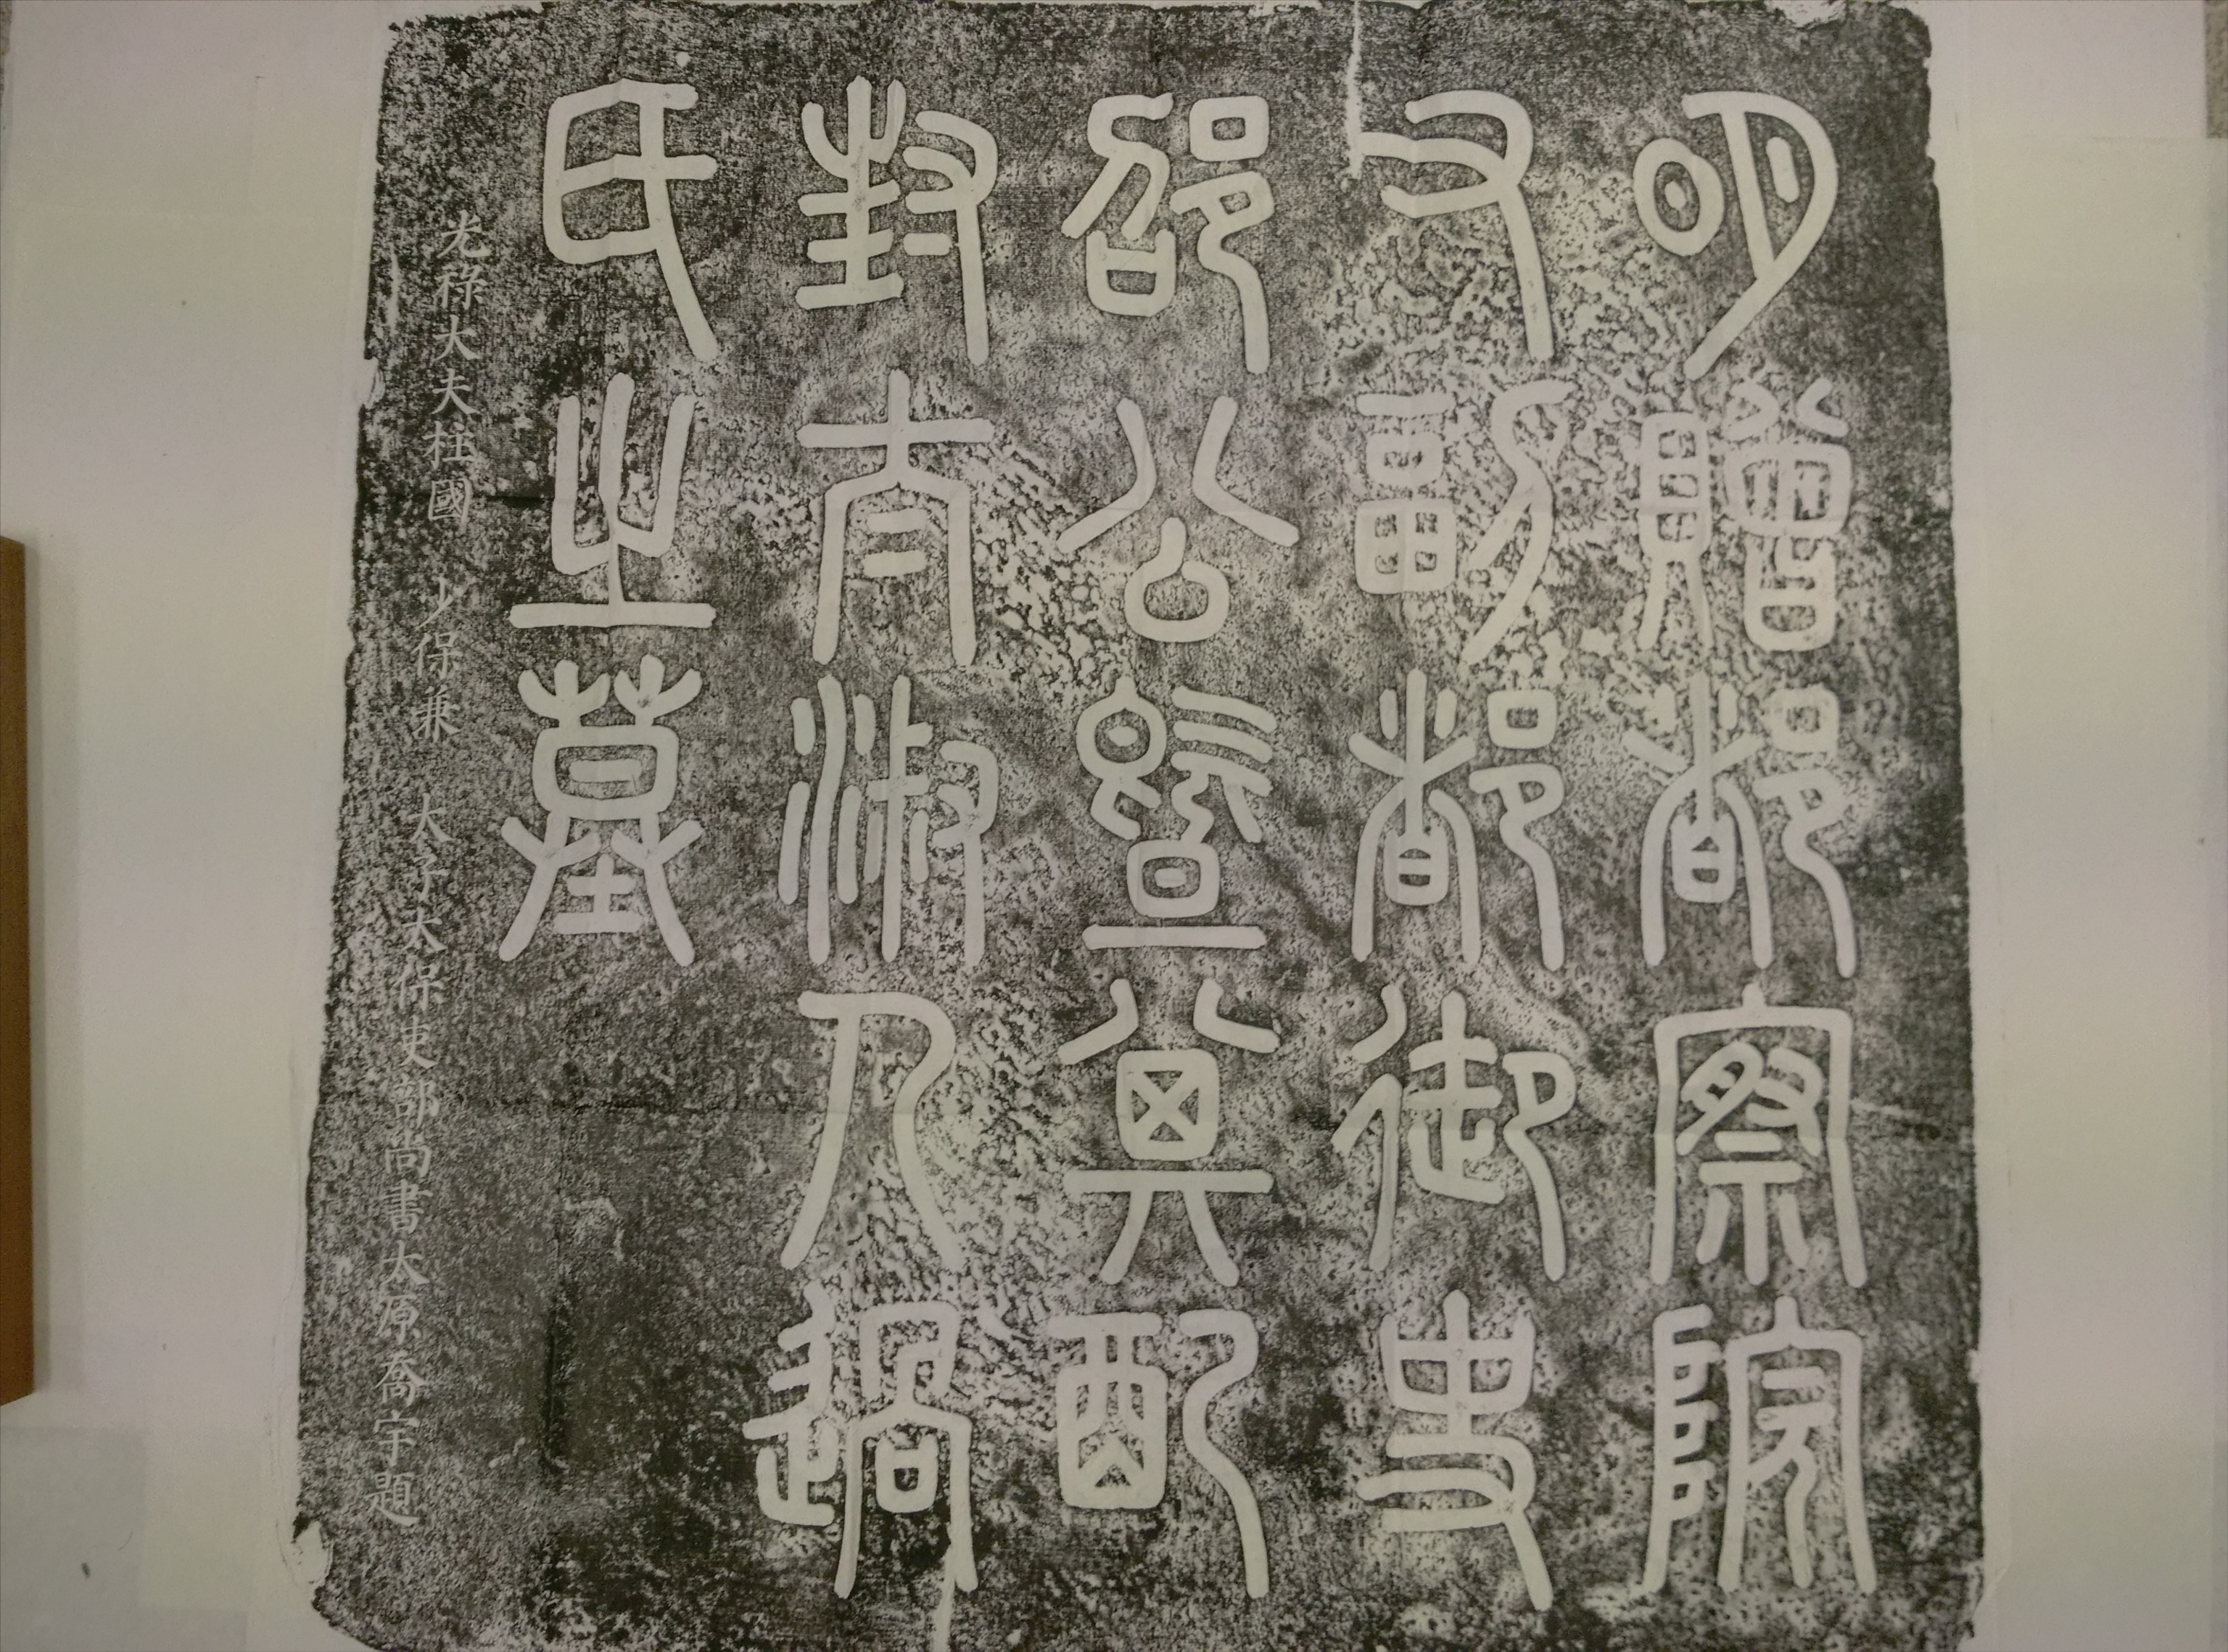 明贈都察院
右副都御史
邵公暨其配
封太淑人過
氏之墓
光祿大夫柱國 少保兼 太子太保吏部尚書太原喬宇題